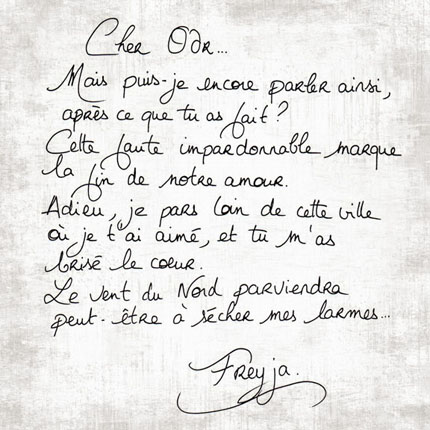 Cher Odr...
Mais puis-je encore parler ainsi,
après ce que tu as fait ?
Cette faute impardonnable marque
la fin de notre amour.
Adieu, je pars loin de cette ville
où je t'ai aimé, et tu m'as
brisé le cœur.
Le vent du Nord parviendra
peut-être à sécher mes larmes...
Freyja.